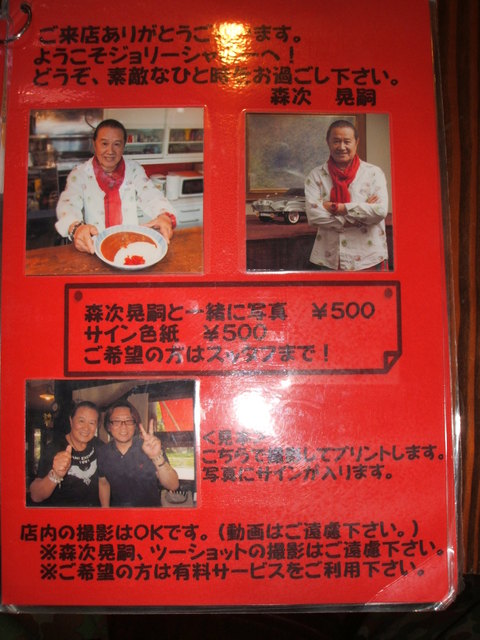 ご来店ありがとうご　　ます。
ようこそジョリーシャ　ーへ！
どうぞ、素敵なひと時をお過ごし下さい。
森次　晃嗣
森次晃嗣と一緒に写真　￥500
サイン色紙　￥500
ご希望の方はスタッフまで！
こちらで撮影してプリントします。
写真にサインが入ります。
店内の撮影はOKです。（動画はご遠慮下さい。）
※森次晃嗣、ツーショットの撮影はご遠慮下さい。
※ご希望の方は有料サービスをご利用下さい。